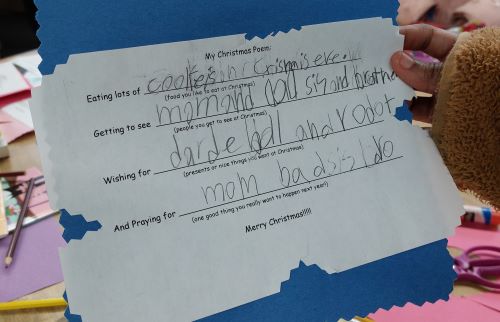 My Christmas Poem:
Eating lots of cookies in Crismis eve.
(food you like to eat at Christmas)
Getting to see mom and dad sis and
(people you get to see at Christmas)
Wishing for and rodot
(presents or nice things you want at Christmas)
And Praying for mom dad sis
(one good thing you really want to happen next year!)
Merry Christmas!!!!